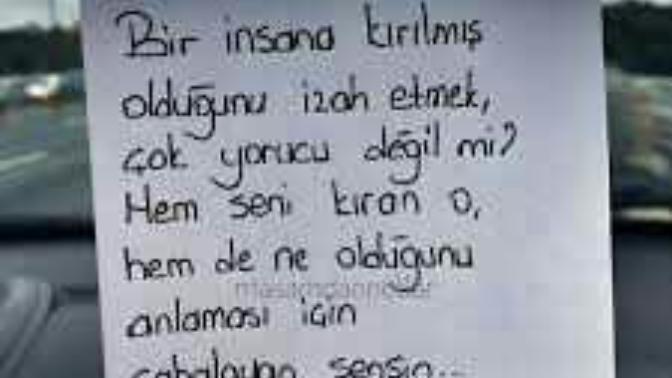 Bir insana kırılmış
olduğunu izah etmek,
çok yorucu değil mi?
Hem seni kıran o,
hem de ne olduğunu
anlaması için
çabalayan sensin...